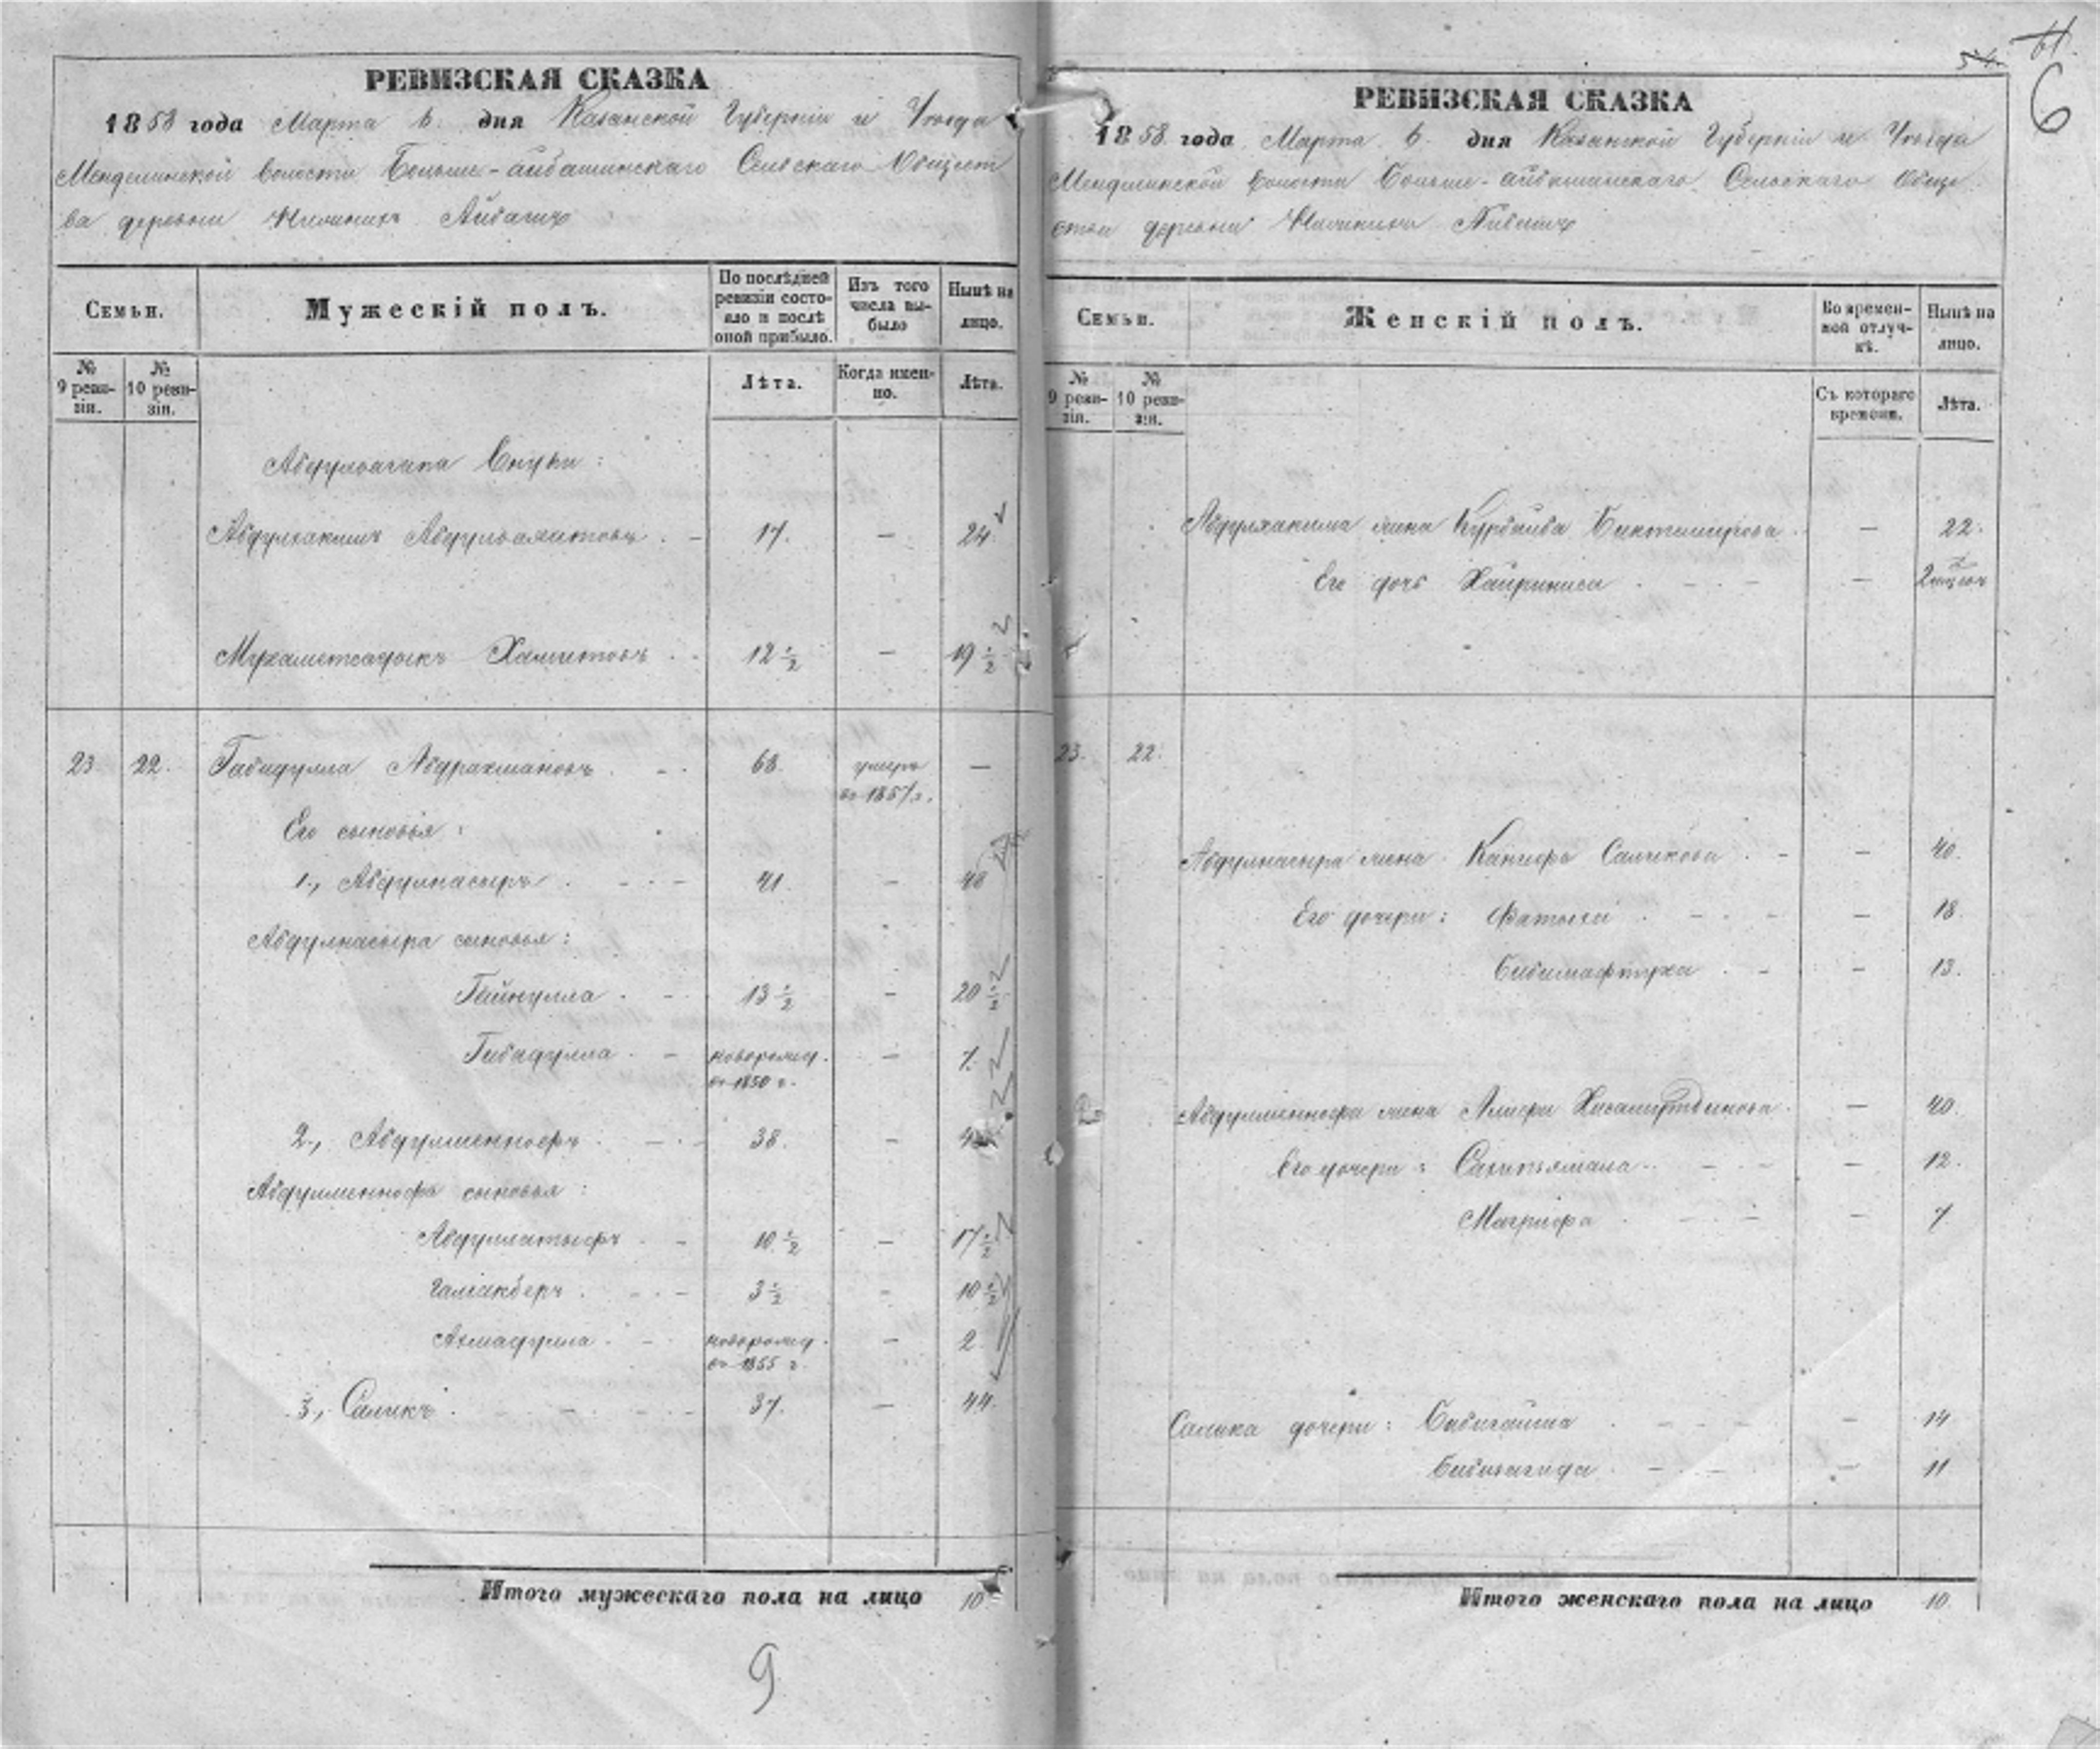 РЕВИЗСКАЯ СКАЗКА
1858 года Марта 6 дня Казанской Губернiи и Уѣзда
волости Больше-айбашинскаго Сельскаго Общест
ва деревни Айбашъ
Семьи.
Мужескiй полъ.
По послѣдней ревизiи состо-
яло и послѣ оной прибыло.
Изъ того числа вы-
было
Нынѣ на лицо.
№ 9 реви-
зiи.
№ 10 реви-
зiи.
Лѣта.
Когда имен-
но.
Лѣта.
Абдулвагапа Внуки:
Абдулхакимъ 17. — 24
Мухаметсадыкъ Хамитовъ 12 ½ — 19 ½
23 22. Габидулла Абдрахмановъ 68. умеръ —
въ 1857 г.
Его сыновья:
1., Абдулнасыръ 41. — 48
Абдулнасыра сыновья:
Гайнулла 13 ½ — 20 ½
Гибадулла новорожд. — 7.
въ 1850 г.
2., Абдулменнофъ 38. —
Абдулменнофа сыновья:
Абдуллатыфъ 10 ½ — 17 ½
Галiакберъ 3 ½ - 10 ½
новорожд. — 2
въ 1855 г.
3., Саликъ 37. — 44.
Итого мужескаго пола на лицо 10
9
54.
6
РЕВИЗСКАЯ СКАЗКА
1858 года Марта 6. дня Казанской Губернiи и Уѣзда
волости Больше-айбашинскаго Сельскаго Обще
ства деревни Айбашъ
Семьи.
Женскiй полъ.
Во времен-
ной отлуч-
кѣ.
Нынѣ на лицо.
№ 9 реви-
зiи.
№ 10 реви-
зiи.
Съ котораго времени.
Лѣта.
Абдулхакима жена Биктемирова — 22.
Его дочь Хайриниса —
23. 22.
Абдулнасыра жена Салихова — 40.
Его дочери: — 18.
Бибимафтуха — 13.
Абдулменнофа жена Хисамутдинова — 40.
Его дочери: — 12.
Магрифа — 7.
Салика дочери: Бибигайша — 14
— 11
Итого женскаго пола на лицо 10.